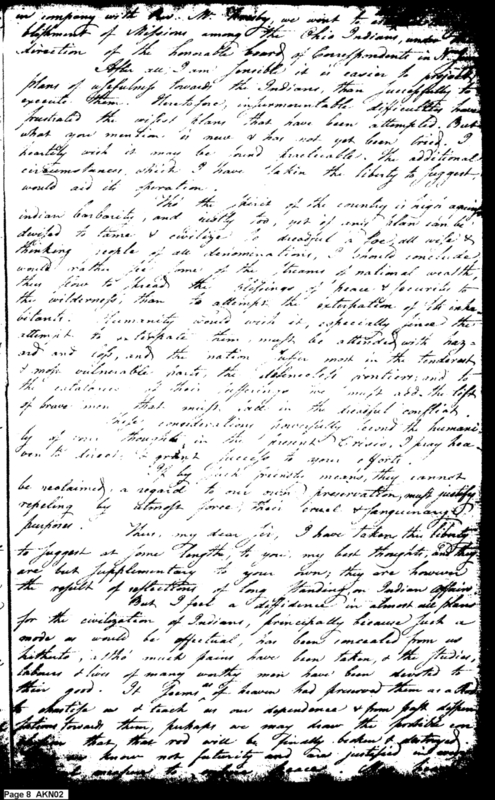 in company with Rev. Mr. we went to
blishment of Missions among the Ohio Indians, under
direction of the honorable board of Correspondents in
After all, I am sensible it is easier to project
plans of usefulness towards the Indians, than successfully to
execute them. Heretofore, insurmountable difficulties have
frustrated the wisest plans that have been attempted. But
what you mention is new & has not yet been tried. I
heartily wish it may be found practicable. The additional
circumstances, which I have taken the liberty to suggest
would aid its operation.
Tho' the spirit of the country is high against
indian barbarity, and justly too, yet if any plan can be
devised to tame & civilize so dreadful a foe, all wise &
thinking people of all denominations, I should conclude,
would rather see some of the streams of national wealth
thus flow to spread the blessings of peace & security to
the wilderness, than to attempt the extirpation of its inha-
bitants. Humanity would wish it, especially since the
attempt to extirpate them must be attended with haz-
ard and cost, and the nation most in the tenderest
& most vulnerable part, the defenceless frontiers; and to
the catalogue of their sufferings we must add the loss
of brave men that must fall in the dreadful conflict.
These considerations powerfully second the humani-
ty of your thoughts, in the present Crisis, I pray hea-
ven to direct & grant success to your efforts.
If by such friendly means, they cannot
be reclaimed, a regard to our own preservation, must justify
repeling by utmost force, their cruel & sanguinary
purposes.
Thus, my dear Sir, I have taken the liberty
to suggest at some length to you, my best thoughts, and they
are but supplementary to your own; they are however
the result of reflections of long standing on Indian Affairs.
But I feel a diffidence in almost all plans
for the civilization of Indians, principally because such a
mode as would be effectual, has been concealed from us
hitherto, altho' much pains have been taken, & the studies,
labours & lives of many worthy men have been devoted to
their good. It seems as if heaven had preserved them as a Rod
to chastise us & teach us our dependence & from past dispen-
sations towards them, perhaps we may draw the probable con
clusion that that rod will be finally broken & destroyed
we know not futurity and are justified in
Page 8 AKN02